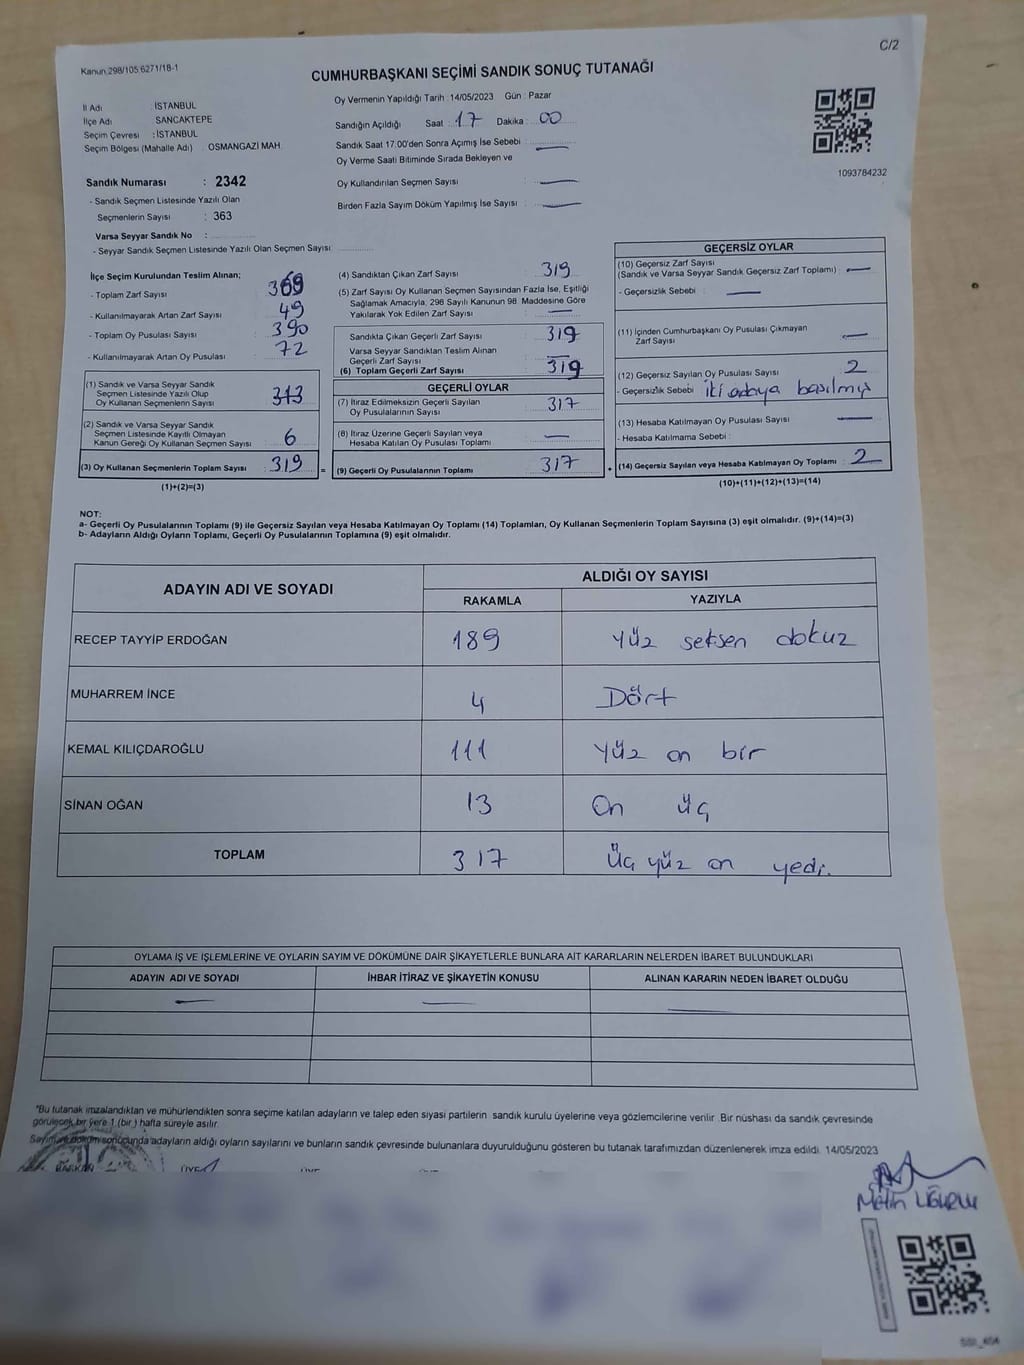 C/2
Kanun 298/105 6271/18-1
CUMHURBAŞKANI SEÇİMİ SANDIK SONUÇ TUTANAĞI
İl Adı : İSTANBUL
İlçe Adı SANCAKTEPE
Seçim Çevresi : İSTANBUL
Seçim Bölgesi (Mahalle Adı) : OSMANGAZİ MAH.
Sandık Numarası : 2342
- Sandık Seçmen Listesinde Yazılı Olan
Seçmenlerin Sayısı : 363
Varsa Seyyar Sandık No :
- Seyyar Sandık Seçmen Listesinde Yazılı Olan Seçmen Sayısı:
Oy Vermenin Yapıldığı Tarih : 14/05/2023 Gün : Pazar
Sandığın Açıldığı Saat : 17 Dakika : 00
Sandık Saat 17.00'den Sonra Açımış İse Sebebi : —
Oy Verme Saati Bitiminde Sırada Bekleyen ve
Oy Kullandırılan Seçmen Sayısı : —
Birden Fazla Sayım Döküm Yapılmış İse Sayısı : —
1093784232
İlçe Seçim Kurulundan Teslim Alınan;
- Toplam Zarf Sayısı 369
- Kullanılmayarak Artan Zarf Sayısı 49
- Toplam Oy Pusulası Sayısı 390
- Kullanılmayarak Artan Oy Pusulası 72
(1) Sandık ve Varsa Seyyar Sandık
Seçmen Listesinde Yazılı Olup
Oy Kullanan Seçmenlerin Sayısı 313
(2) Sandık ve Varsa Seyyar Sandık
Seçmen Listesinde Kayıtlı Olmayan
Kanun Gereği Oy Kullanan Seçmen Sayısı 6
(3) Oy Kullanan Seçmenlerin Toplam Sayısı : 319 =
(1)+(2)=(3)
(4) Sandıktan Çıkan Zarf Sayısı : 319
(5) Zarf Sayısı Oy Kullanan Seçmen Sayısından Fazla İse, Eşitliği
Sağlamak Amacıyla, 298 Sayılı Kanunun 98. Maddesine Göre
Yakılarak Yok Edilen Zarf Sayısı : —
Sandıkta Çıkan Geçerli Zarf Sayısı : 319
Varsa Seyyar Sandıktan Teslim Alınan
Geçerli Zarf Sayısı : —
(6) Toplam Geçerli Zarf Sayısı : 319
GEÇERLİ OYLAR
(7) İtiraz Edilmeksizin Geçerli Sayılan
Oy Pusulalarının Sayısı : 317
(8) İtiraz Üzerine Geçerli Sayılan veya
Hesaba Katılan Oy Pusulası Toplamı : —
(9) Geçerli Oy Pusulalarının Toplamı : 317 +
GEÇERSİZ OYLAR
(10) Geçersiz Zarf Sayısı
(Sandık ve Varsa Seyyar Sandık Geçersiz Zarf Toplamı) : —
- Geçersizlik Sebebi : —
(11) İçinden Cumhurbaşkanı Oy Pusulası Çıkmayan
Zarf Sayısı : —
(12) Geçersiz Sayılan Oy Pusulası Sayısı : 2
- Geçersizlik Sebebi : iki adaya basılmış
(13) Hesaba Katılmayan Oy Pusulası Sayısı : —
- Hesaba Katılmama Sebebi :
(14) Geçersiz Sayılan veya Hesaba Katılmayan Oy Toplamı : 2
(10)+(11)+(12)+(13)=(14)
NOT:
a- Geçerli Oy Pusulalarının Toplamı (9) ile Geçersiz Sayılan veya Hesaba Katılmayan Oy Toplamı (14) Toplamları, Oy Kullanan Seçmenlerin Toplam Sayısına (3) eşit olmalıdır. (9)+(14)=(3)
b- Adayların Aldığı Oyların Toplamı, Geçerli Oy Pusulalarının Toplamına (9) eşit olmalıdır.
ADAYIN ADI VE SOYADI ALDIĞI OY SAYISI
RAKAMLA YAZIYLA
RECEP TAYYİP ERDOĞAN 189 Yüz seksen dokuz
MUHARREM İNCE 4 Dört
KEMAL KILIÇDAROĞLU 111 Yüz on bir
SİNAN OĞAN 13 On üç
TOPLAM 317 Üç yüz on yedi.
OYLAMA İŞ VE İŞLEMLERİNE VE OYLARIN SAYIM VE DÖKÜMÜNE DAİR ŞİKAYETLERLE BUNLARA AİT KARARLARIN NELERDEN İBARET BULUNDUKLARI
ADAYIN ADI VE SOYADI İHBAR İTİRAZ VE ŞİKAYETİN KONUSU ALINAN KARARIN NEDEN İBARET OLDUĞU
— — —
"Bu tutanak imzalandıktan ve mühürlendikten sonra seçime katılan adayların ve talep eden siyasi partilerin sandık kurulu üyelerine veya gözlemcilerine verilir. Bir nüshası da sandık çevresinde
görülecek bir yere 1 (bir) hafta süreyle asılır.
Sayım ve döküm sonucunda adayların aldığı oyların sayılarını ve bunların sandık çevresinde bulunanlara duyurulduğunu gösteren bu tutanak tarafımızdan düzenlenerek imza edildi. 14/05/2023
BAŞKAN ÜYE ÜYE ÜYE
Metin UĞURLU